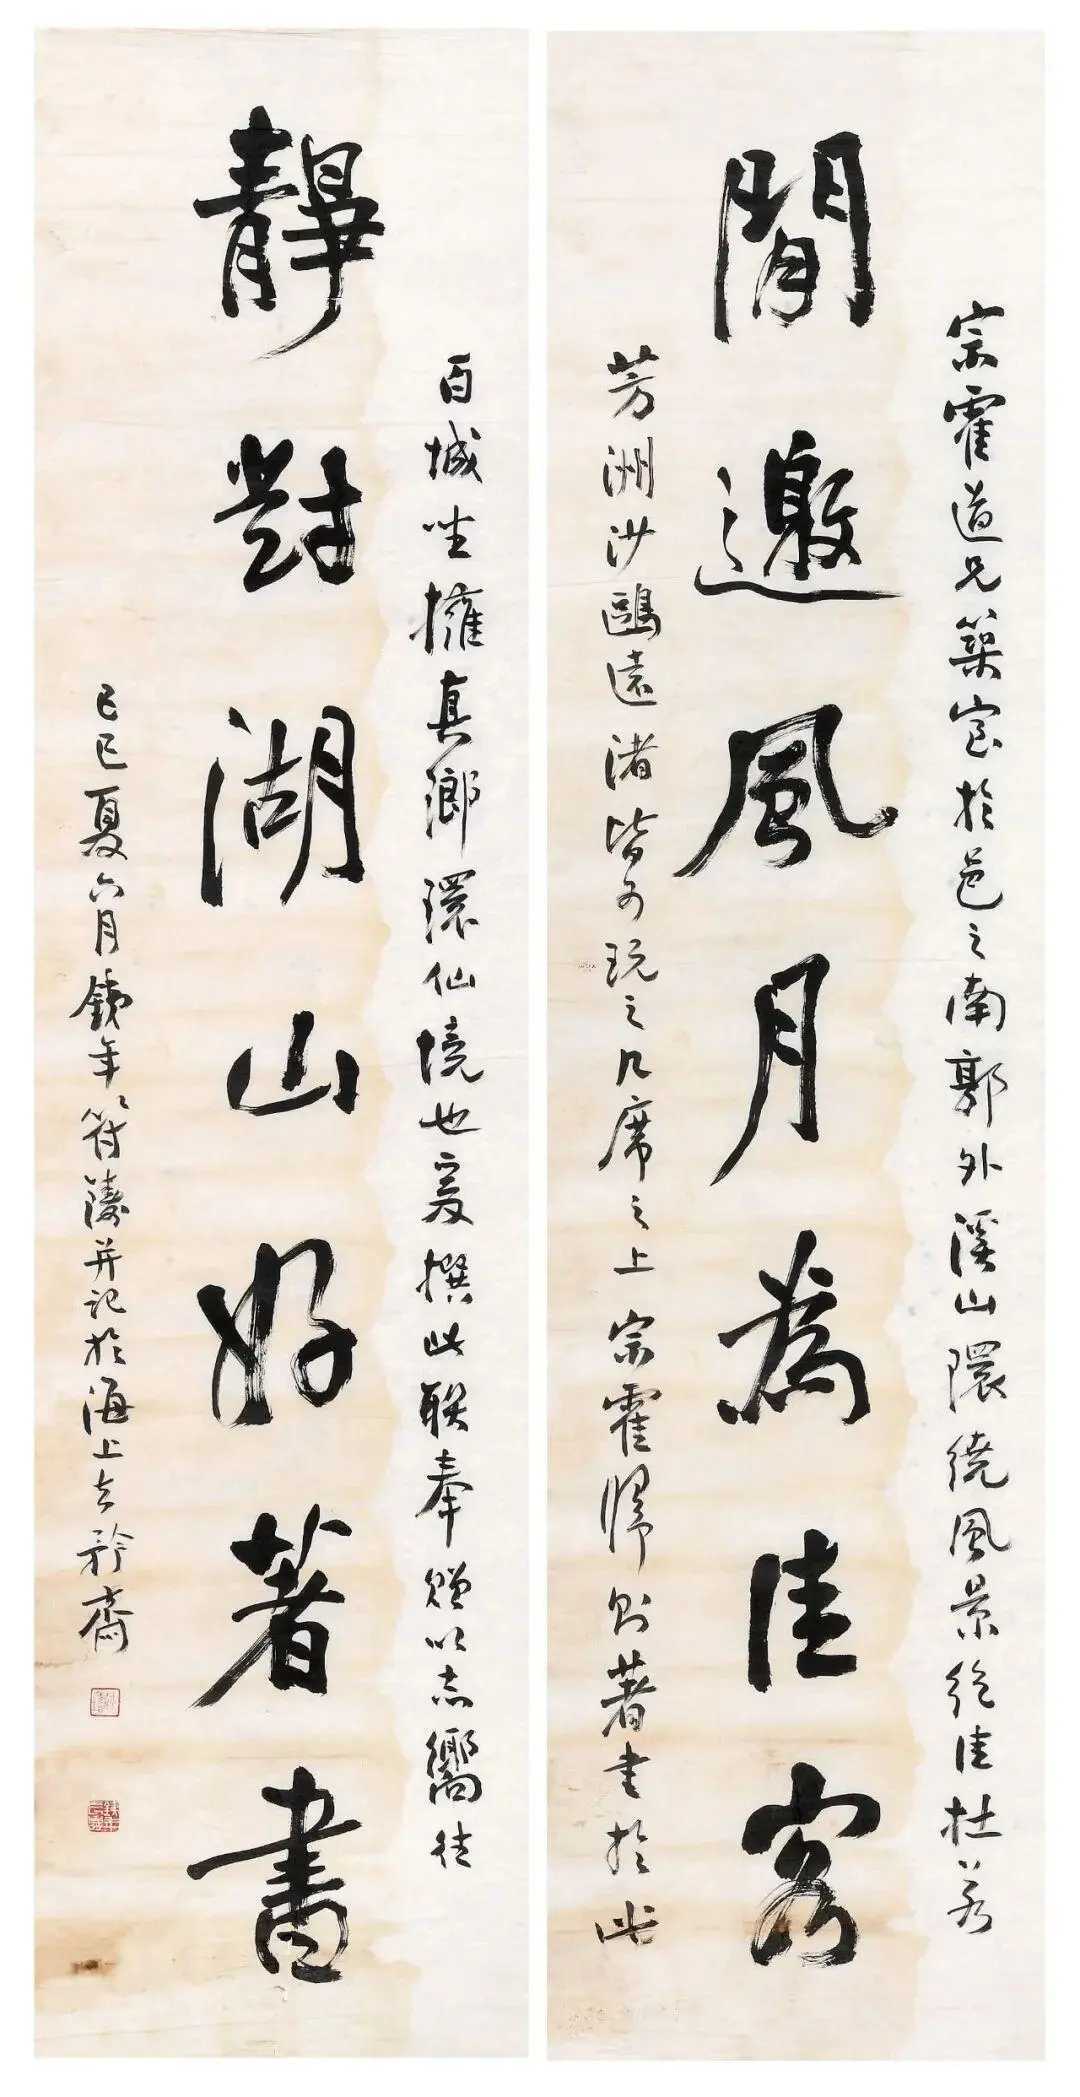 宗霍道兄築室於邑之南郭外溪山隈繞風景絕佳杜若
閒邀風月為佳客
芳洲沙鷗遠渚皆可玩之几席之上宗霍歸則著書於此
百城坐擁真瑯環仙境也爰撰此聯奉贈以志嚮往
靜對湖山好著書
己巳夏六月鐵年符陵并記於海上去矜齋